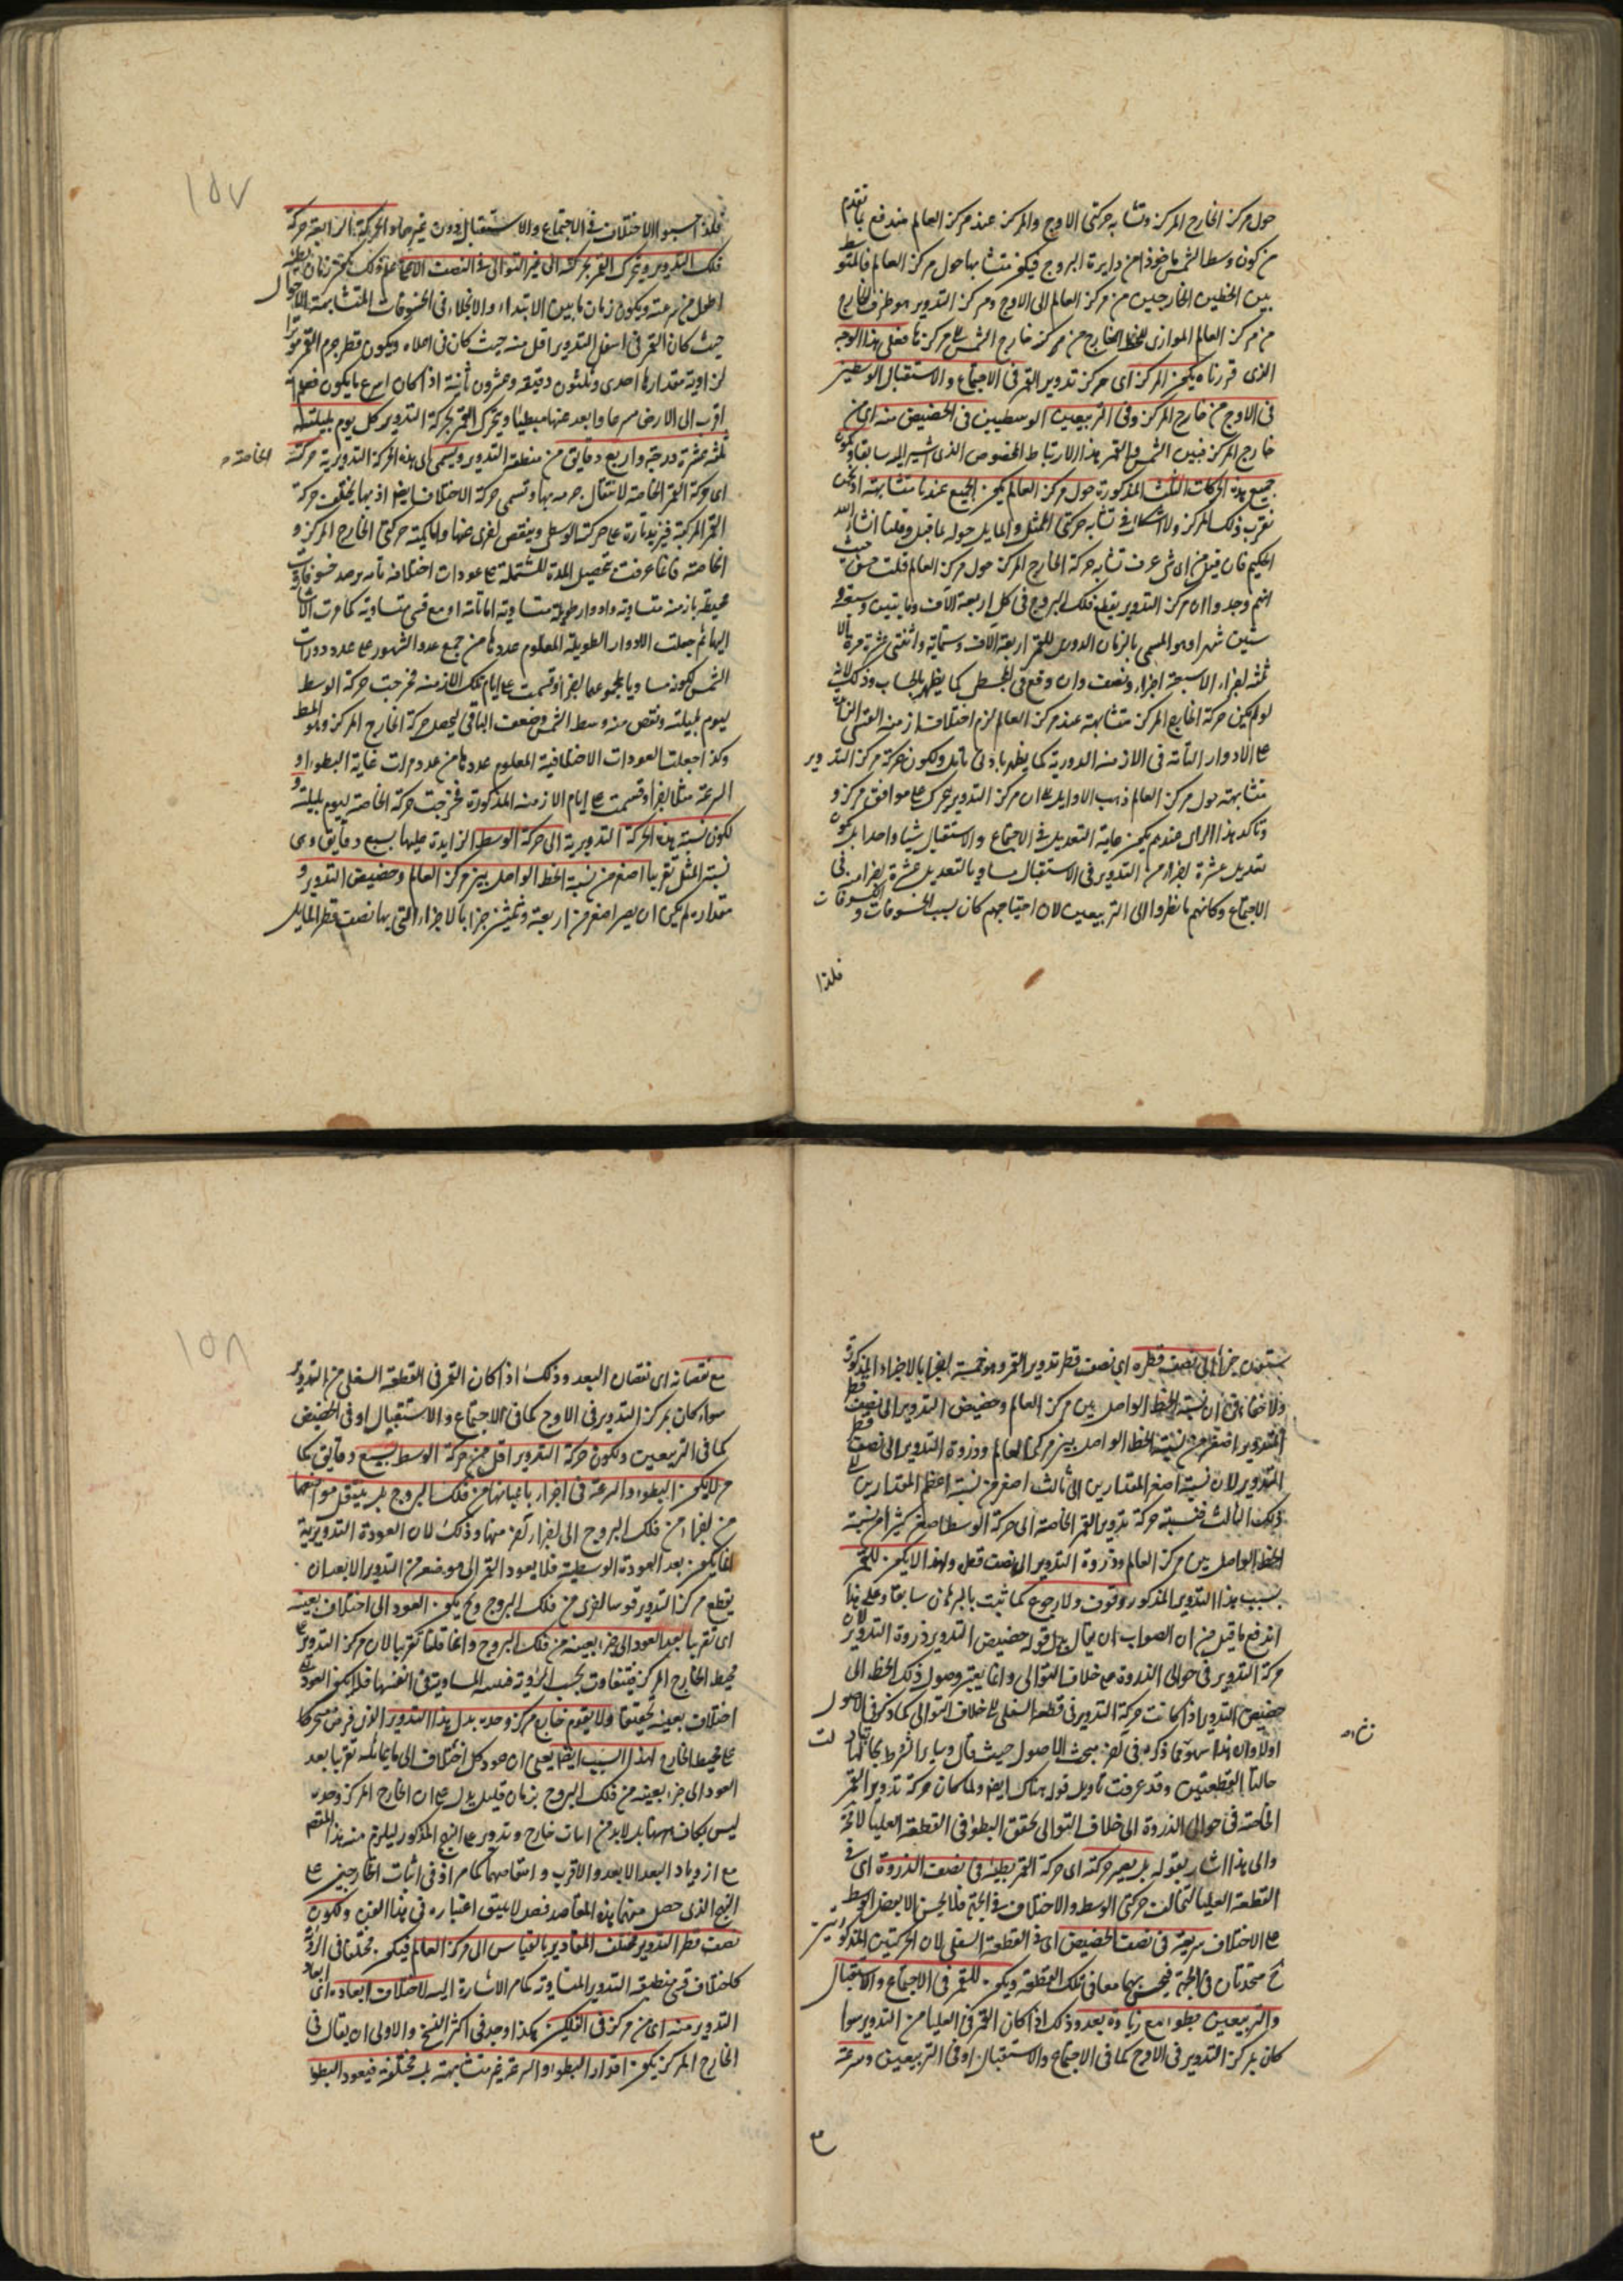 حول مركز الخارج المركز وتشابه حركتى الاوج والمركز عند مركز العالم مندفع بما تقدم
من كون وسط الشمس ماخوذا من دايرة البروج فيكون متشابها حول مركز العالم فالمتوسط
بين الخطين الخارجين من مركز العالم الى الاوج ومركز التدوير هو طرف الخارج
من مركز العالم الموازى للخط الخارج من مركز خارج الشمس الى مركزها فعلى هذا الوجه
الذى قررناه يكون المركز اى مركز تدوير القمر فى الاجتماع والاستقبال الوسطين
فى الاوج من خارج المركز وفى التربيعين الوسطيين فى الحضيض منه اى من
خارج المركز فبين الشمس والقمر هذا الارتباط المخصوص الذى اشير اليه سابقا ويكون
جميع هذه الحركات الثلث المذكورة حول مركز العالم يكون الجميع عندنا متشابهة اذ نحن
بقرب ذلك المركز ولا اشكال فى تشابه حركتى الممثل والمايل حوله
الحكيم فان قيل من اى شئ عرف تشابه حركة الخارج المركز حول مركز العالم قلت من حيث
انهم وجدوا ان مركز التدوير يقطع فلك البروج فى كل اربعة آلاف ومايتين وسبعة و
ستين شهرا وهو المسمى بالزمان الدورى للقمر اربعة آلاف وستماية واثنتى عشرة مرة الا
ثمنه اجزاء الا سبعة اجزاء ونصف وان وقع فى المجسطى كما يظهر بالحساب وذلك لانه
لو لم يكن حركة الخارج المركز متشابهة عند مركز العالم لزم اختلاف ازمنة
على الادوار التامة فى الازمنة الدورية كما يظهر بادنى تامل ولكون حركة مركز التدوير
متشابهة حول مركز العالم ذهب الاوايل الى ان مركز التدوير يتحرك على موافق مركز و
وتاكد هذا الراى عندهم بكون غاية التعديل فى الاجتماع والاستقبال شيئا واحدا بل كون
تعديل عشرة اجزاء من التدوير فى الاستقبال مساويا لتعديل عشرة اجزاء فى
الاجتماع وكانهم ما نظروا الى التربيعين لان احتياجهم كان بسبب الخسوفات والكسوفات
فلذا
١٥٧
فلذا حسبوا الاختلاف فى الاجتماع والاستقبال دون غيرهما والحركة الرابعة حركة
فلك التدوير ويتحرك القمر بحركته الى غير التوالى فى النصف الاعلى
اطول من سرعته ويكون زمان ما بين الابتداء والانجلاء فى الخسوفات المتشابهة الاحوال
حيث كان القمر فى اسفل التدوير اقل منه حيث كان فى اعلاه ويكون قطر جرم القمر موترا
لزاوية مقدارها احدى وثلثون دقيقة وعشرون ثانية اذا كان اسرع ما يكون
اقرب الى الارض سريعا وابعد عنها بطيئا ويتحرك القمر بحركة التدوير كل يوم بليلته
ثلثة عشرة درجة واربع دقايق من منطقة التدوير ويسمى اى هذه الحركة التدويرية حركة
الخاصة
اى حركة القمر الخاصة لانتقال جرمه بها وتسمى حركة الاختلاف ايضا اذ بها يختلف حركة
القمر المركبة فيزيد تارة على حركة الوسطى وينقص اخرى عنها واما كمية حركتى الخارج المركز و
الخاصة فانما عرفت بتحصيل المدة المشتملة على عودات اختلافه تامة برصد خسوفات
محيطة بازمنة متساوية وادوار طولية متساوية اما تامة او مع قسى متساوية كما مرت الاشارة
اليها ثم جعلت الادوار الطولية المعلوم عددها من جمع عدد الشهور على عدد دورات
الشمس لكونه مساويا لمجموعهما اجزاء وقسمت على ايام تلك الازمنة فخرجت حركة الوسط
ليوم بليلته ونقص منه وسط الشمس وضعف الباقى ليحصل حركة الخارج المركز وهو المط
وكذا جعلت العودات الاختلافية المعلوم عددها من عدد مرات غاية البطوء او
السرعة مثلا اجزاء وقسمت على ايام الازمنة المذكورة فخرجت حركة الخاصة ليوم بليلته و
لكون نسبة هذه الحركة التدويرية الى حركة الوسط الزايدة عليها بسبع دقايق وهى
نسبة المثل تقريبا اصغر من نسبة الخط الواصل بين مركز العالم وحضيض التدوير و
مقداره لم يكن ان يصير اصغر من اربعة وثلثين جزءا بالاجزاء التى بها نصف قطر المايل
ستون جزءا الى نصف قطره اى نصف قطر تدوير القمر وهو خمسة اجزاء بالاجزاء المذكورة
ولا خفاء فى ان نسبة الخط الواصل بين مركز العالم وحضيض التدوير الى نصف قطر
التدوير اصغر من نسبة الخط الواصل بين مركز العالم وذروة التدوير الى نصف قطر
التدوير لان نسبة اصغر المقدارين الى ثالث اصغر من نسبة اعظم المقدارين الى
ذلك الثالث فنسبة حركة تدوير القمر الخاصة الى حركة الوسط اصغر كثيرا من نسبة
الخط الواصل بين مركز العالم وذروة التدوير الى نصف قطره ولهذا لا يكون للقمر
بسبب هذا التدوير المذكور وقوف ولا رجوع كما ثبت بالبرهان سابقا وعلى هذا
اندفع ما قيل من ان الصواب ان يقال بدل قوله حضيض التدوير ذروة التدوير لان
حركة التدوير فى حوالى الذروة على خلاف التوالى وانما يعتبر وصول ذلك الخط الى
حضيض التدوير اذا كانت حركة التدوير فى قطعة السفلى الى خلاف التوالى كما ذكر فى الاصول
اولا وان هذا سهو مما ذكره فى آخر مبحث الاصول حيث قال وساير الشروط بحالها
حالتا القطعتين وقد عرفت تاويل قوله هناك ايضا ولما كان حركة تدوير القمر
الخاصة فى حوالى الذروة الى خلاف التوالى تحقق البطوء فى القطعة العليا لا محالة
والى هذا اشار بقوله بل يصير حركته اى حركة القمر بطيئة فى نصف الذروة اى فى
القطعة العليا لتخالف حركتى الوسط والاختلاف فى الجهة فلا يحس الا بفضل الوسط
على الاختلاف سريعة فى نصف الحضيض اى فى القطعة السفلى لان الحركتين المذكورتين
ح متحدتان فى الجهة فيحس بهما معا فى تلك القطعة ويكون للقمر فى الاجتماع والاستقبال
والتربيعين بطوء مع زيادة بعد وذلك اذا كان القمر فى العليا من التدوير سواء
كان مركز التدوير فى الاوج كما فى الاجتماع والاستقبال او فى التربيعين وسرعة
مع
١٥٨
مع نقصانه اى نقصان البعد وذلك اذا كان القمر فى القطعة السفلى من التدوير
سواء كان مركز التدوير فى الاوج كما فى الاجتماع والاستقبال او فى الحضيض
كما فى التربيعين ولكون حركة التدوير اقل من حركة الوسط بسبع دقايق كما
مر لا يكون البطوء والسرعة فى اجزاء باعيانها من فلك البروج بل ينتقل مواضعهما
من اجزاء من فلك البروج الى اجزاء اخر منها وذلك لان العودة التدويرية
انما يكون بعد العودة الوسطية فلا يعود القمر الى موضعه من التدوير الا بعد ان
يقطع مركز التدوير قوسا اخرى من فلك البروج وح يكون العود الى اختلاف بعينه
اى تقريبا بعد العود الى جزء بعينه من فلك البروج وانما قلنا تقريبا لان مركز التدوير على
محيط الخارج المركز فيتفاوت بحسب الرؤية قسيه المتساوية فى انفسها فلا يكون العود الى
اختلاف بعينه تحقيقا ولا يقوم خارج مركز وحده بدل هذا التدوير الذى فرض متحركا
على محيط الخارج لهذا السبب ايضا يعنى ان عود كل اختلاف الى ما يماثله تقريبا بعد
العود الى جزء بعينه من فلك البروج بزمان قليل يدل على ان الخارج المركز وحده
ليس بكاف ههنا بل لا بد من اثبات خارج وتدوير على النهج المذكور ليلزم منه هذا المقصد
مع ازدياد البعد الابعد والاقرب وانتقاصهما كما مر اذ فى اثبات الخارجين على
النهج الذى حصل منهما هذه المقاصد فضل لا يليق اعتباره فى هذا الفن ولكون
نصف قطر التدوير مختلف المقادير بالقياس الى مركز العالم فيكون مختلفا فى الرؤية
كاختلاف قسى منطقة التدوير المتساوية كما مر الاشارة اليه لاختلاف ابعاده اى ابعاد
التدوير منه اى من مركز فى الفلكين هكذا وجد فى اكثر النسخ والاولى ان يقال فى
الخارج المركز يكون ادوار البطوء والسرعة غير متشابهة بل مختلفة فيعود البطوء